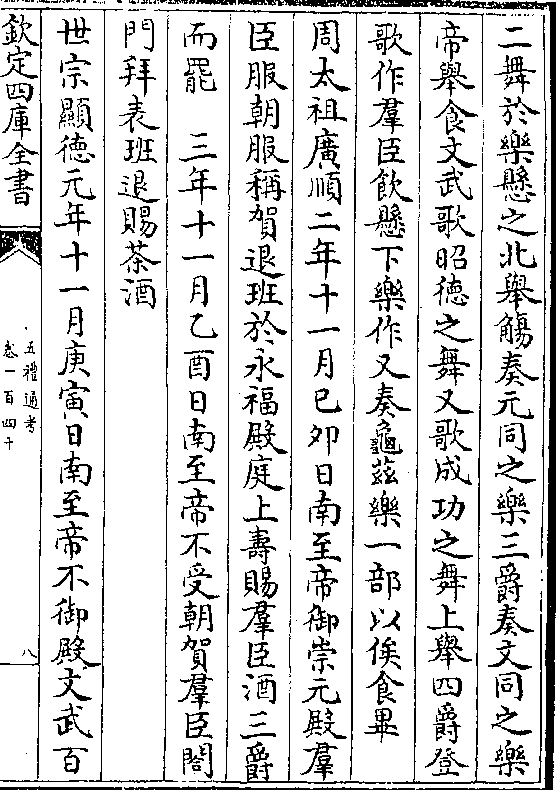 二舞於樂懸之北舉觴奏元同之樂三爵奏文同之樂
帝舉食文武歌昭德之舞又歌成功之舞上舉四爵登
歌作羣臣飲懸下樂作又奏龜茲樂一部以俟食畢
周太祖廣順二年十一月已夘日南至帝御崇元殿羣
臣服朝服稱賀退班於永福殿庭上壽賜羣臣酒三爵
而罷　三年十一月乙酉日南至帝不受朝賀羣臣閤
門拜表班退賜茶酒
世宗顯德元年十一月庚寅日南至帝不御殿文武百
欽定四庫全書
五禮通考
卷一百四十
八